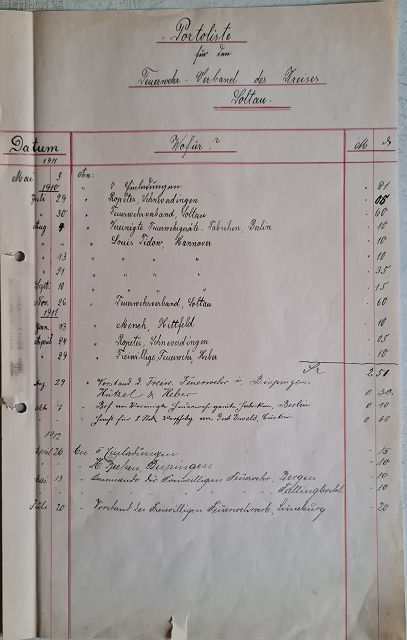 Portoliste
für den
Feuerwehr-Verband des Kreises
Soltau.
Datum Wofür? M. S
1911
Mai 9 An:
1910 " 3 Einladungen - 21
Juli 29 " Röpke, Schneverdingen - 05
" 30 " Feuerwehrverband, Soltau - 60
Aug 4 " Vereinigte Feuerwehrgeräte-Fabriken, Berlin - 10
" " " Louis Tidow, Hannover - 10
" 13 " " " " - 10
" 21 " " " " - 35
Sept. 10 " " " " - 15
Nov. 26 " Feuerwehrverband, Soltau - 60
1911
Jan. 13 " Menck, Hittfeld - 10
April 24 " Röpke, Schneverdingen - 05
" 29 " Freiwillige Feuerwehr Heber - 10
M 2 51
Aug. 29 " Vorstand d. Freiw. Feuerwehr in Bispingen.
Hützel & Heber 0 30.
Okt. 7 " Vereinigte Feuerwehrgeräte Fabriken, Berlin 0 10
" 0 60
1912
April 26 An 5 Einladungen - 15
" Bispingen - 10
Mai 13 " Commando der Freiwilligen Feuerwehr, Bergen - 10
" " " " " Fallingbostel - 10
Juli 20 " Vorstand des Freiwilligen Feuerwehrverb. Lüneburg - 20